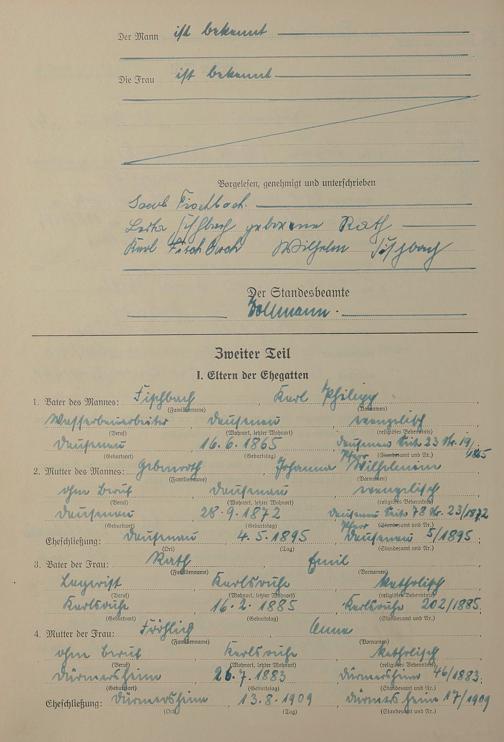 Der Mann ist bekannt
Die Frau ist bekannt
Vorgelesen, genehmigt und unterschrieben
Jacob Fischbach.
Fischbach geborene Rath
Karl Fischbach Wilhelm Fischbach
Der Standesbeamte
Zweiter Teil
I. Eltern der Ehegatten
1. Vater des Mannes: Fischbach, Karl Philipp
(Familienname) (Vornamen)
Wasserbauarbeiter, Dausenau, evangelisch
(Beruf) (Wohnort, letzter Wohnort) (religiöses Bekenntnis)
Dausenau, 16.6.1865, Dausenau Seite 23 Nr. 19/1865
(Geburtsort) (Geburtstag) (Standesamt und Nr.)
2. Mutter des Mannes: Johanna Wilhelmine
(Familienname) (Vornamen)
ohne Beruf, Dausenau, evangelisch
(Beruf) (Wohnort, letzter Wohnort) (religiöses Bekenntnis)
Dausenau, 28.9.1872, Dausenau Seite 78 Nr. 23/1872
(Geburtsort) (Geburtstag) (Standesamt und Nr.)
Eheschließung: Dausenau, 4.5.1895, Dausenau 5/1895
(Ort) (Tag) (Standesamt und Nr.)
3. Vater der Frau: Rath, Emil
(Familienname) (Vornamen)
Lagerist, Karlsruhe, katholisch
(Beruf) (Wohnort, letzter Wohnort) (religiöses Bekenntnis)
Karlsruhe, 16.2.1885, Karlsruhe 202/1885
(Geburtsort) (Geburtstag) (Standesamt und Nr.)
4. Mutter der Frau: Fröhlich, Anna
(Familienname) (Vornamen)
ohne Beruf, Karlsruhe, katholisch
(Beruf) (Wohnort, letzter Wohnort) (religiöses Bekenntnis)
Dürmersheim, 26.7.1883, Dürmersheim 46/1883
(Geburtsort) (Geburtstag) (Standesamt und Nr.)
Eheschließung: Dürmersheim, 13.8.1909, Dürmersheim 17/1909
(Ort) (Tag) (Standesamt und Nr.)